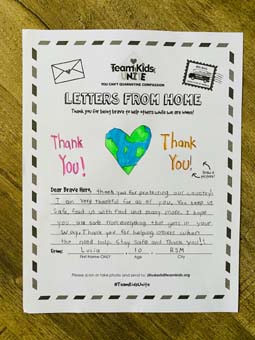 TeamKids
UNITE
YOU CAN'T QUARANTINE COMPASSION
LETTERS FROM HOME
Thank you for being brave to help others while we are home!
Thank You!
Thank You!
Draw a picture!
Dear Brave Hero, thank you for protecting our country!
I am very thankful for all of you. You keep us
safe, feed us with food and many more. I hope
you are safe from everything that goes in your
way. Thank you for helping others when
the need help. Stay safe and thank you!!
From: Lucia 10 RSM
First Name ONLY Age City
#TeamKidsUnite